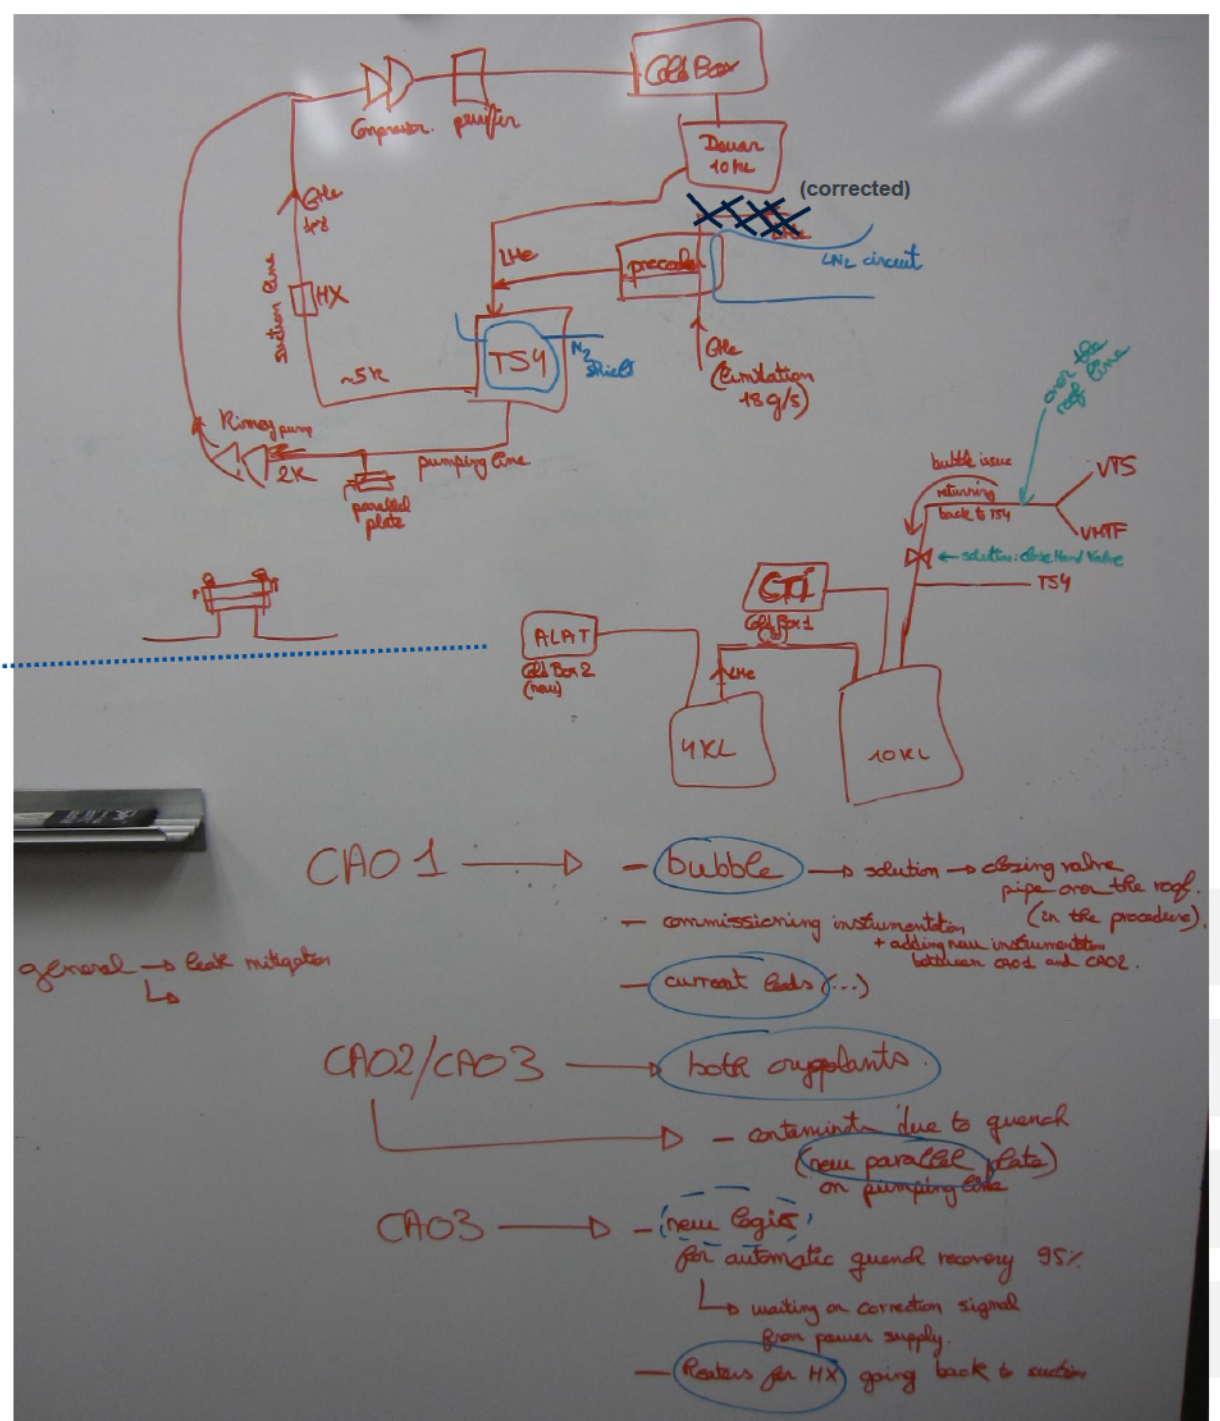 Cold Box
Compressor.
purifier
Dewar
10KL
(corrected)
LHe
GHe
LHe
precooler
LN2 circuit
suction line
HX
TS4
N2
shield
~5K
GHe
(limitation
18 g/s)
over the
roof line
Kinney pump
2K
pumping line
parallel
plate
bubble issue
returning
back to TS4
VTS
VMTF
solution: close Hand Valve
TS4
CTI
Cold Box 1
ALAT
Cold Box 2
(new)
LHe
4KL
10KL
CAO1
- bubble → solution → closing valve
pipe over the roof.
(in the procedure).
- commissioning instrumentation
+ adding new instrumentation
between CAO1 and CAO2.
general → leak mitigation
- current leads (...)
CAO2/CAO3 → both cryoplants.
- contaminat. due to quench
(new parallel plate)
on pumping line
CAO3 → - new logic
for automatic quench recovery 95%
waiting on correction signal
from power supply.
- heaters for HX going back to suction